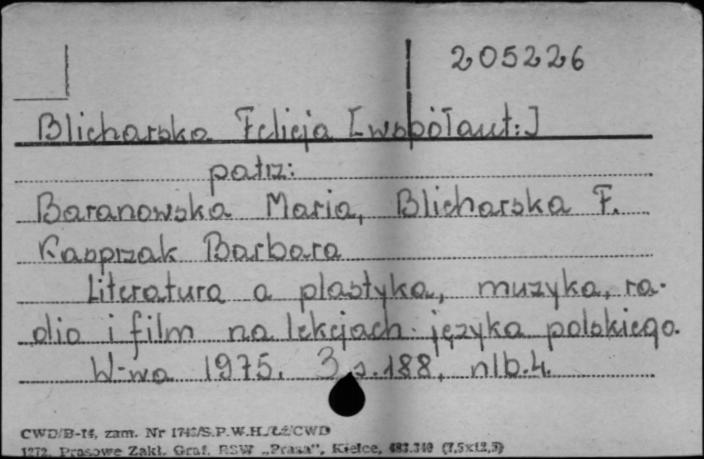 205226
Blicharska Felicja [współaut:]
patrz:
Baranowska Maria, Blicharska F.
Kasprzak Barbara
Literatura a plastyka, muzyka, ra-
dio i film na lekcjach języka polskiego.
W-wa 1975. 3 s. 188, nlb. 4.
CWD/B-14, zam. Nr S.P.W.H. CWD
1272. Prasowe Zakł. Graf. RSW „Prasa”, Kielce, (7,5x12,5)